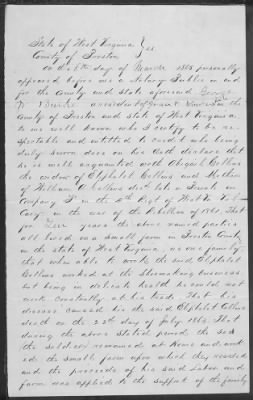 State of West Virginia } ss.
County of Preston
On the 8th day of March 1865 personally
appeared before me a Notary Public in and
for the County and State aforesaid George
W a resident of in the
County of Preston and State of West Virginia
to me well known who I certify to be re-
spectable and entitled to credit who being
duly sworn does on his oath declare that
he is well acquainted with Abigail Collins
the widow of Eliphalet Collins and Mother
of William Collins decd late a Private in
Company F in the 4th Regt of West Va
in the war of the Rebellion of 1861. That
for years the above named parties
all lived on a small farm in Preston County
in the State of West Virginia as one family
that when able to work the said Eliphalet
Collins worked at the Shoemaking business
but being in delicate health he could not
work constantly at his trade. That his
disease caused his the said Eliphalet Collins
death on the 23d day of July 1864. That
during the above stated period the said
the soldier remained at Home and work-
ed the small farm upon which they resided
and the proceeds of his said Labor and
farm was applied to the support of the family